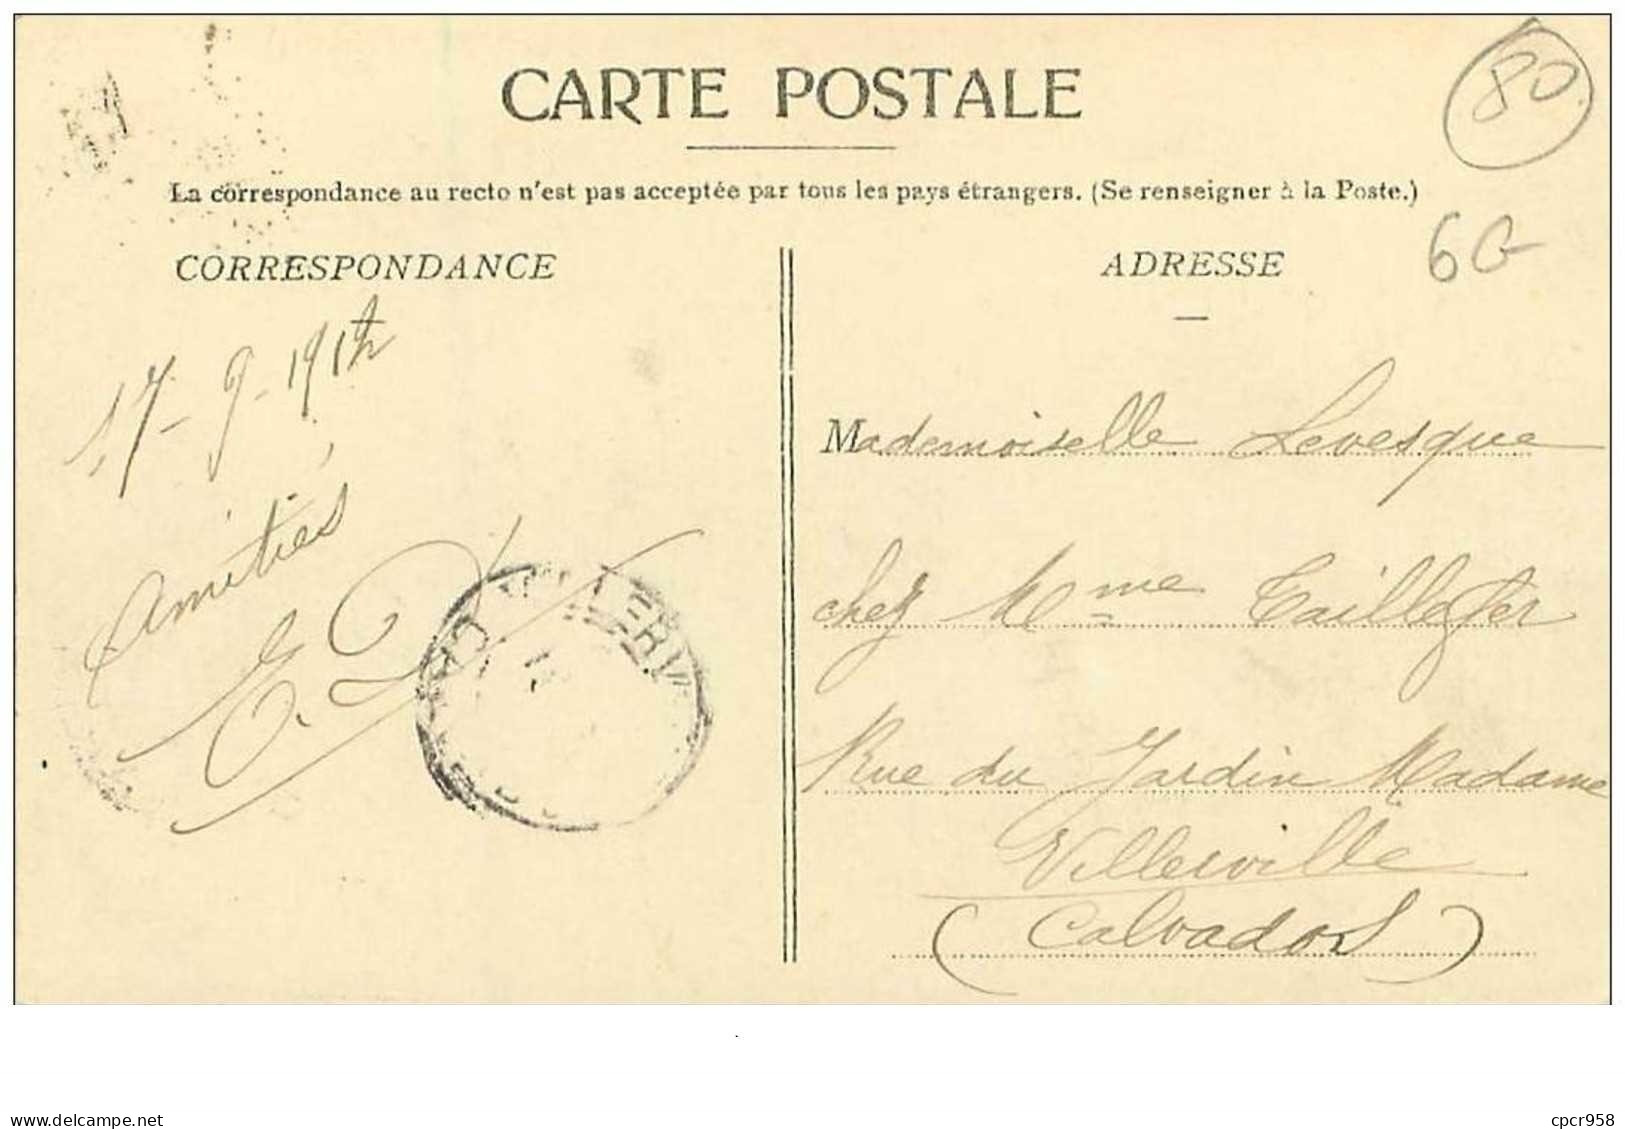 CARTE POSTALE
80
La correspondance au recto n'est pas acceptée par tous les pays étrangers. (Se renseigner à la Poste.)
6G
CORRESPONDANCE
ADRESSE
17-9-1912
Amitiés
Mademoiselle Levesque
chez Mme Taillefer
Rue du Jardin Madame
Villerville
(Calvados)
website:delcampe.net
cpcr958